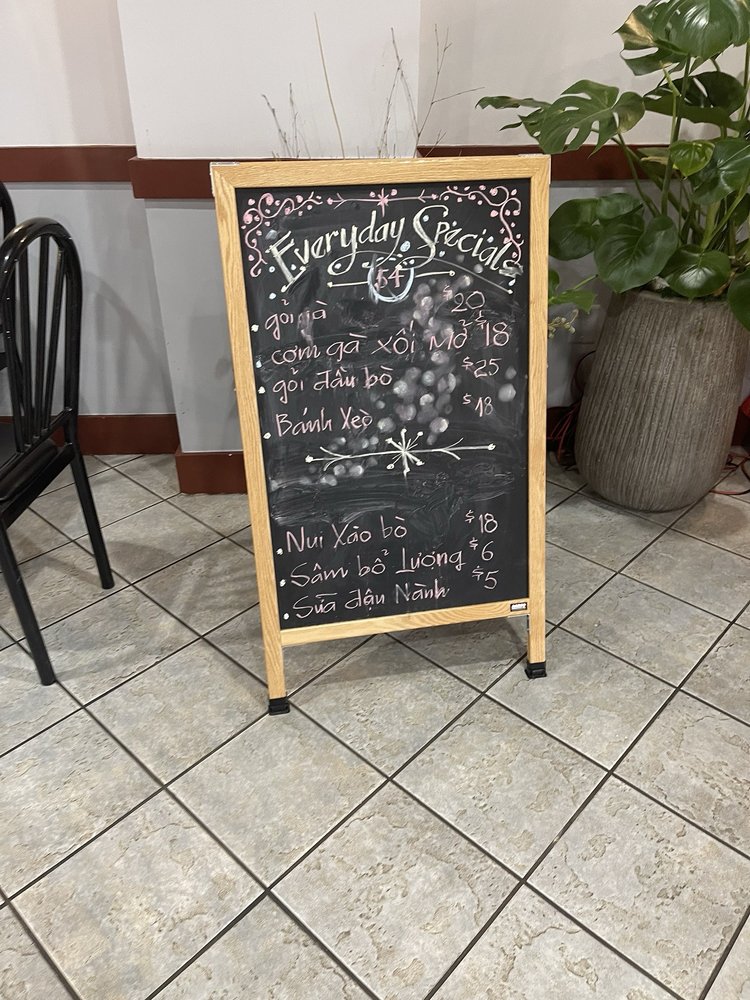 Everyday Specials
54
gỏi gà $20
cơm gà xối mỡ $18
gỏi đầu bò $25
Bánh Xèo $18
Nui Xào bò $18
Sâm bổ Lượng $6
Sữa đậu Nành $5